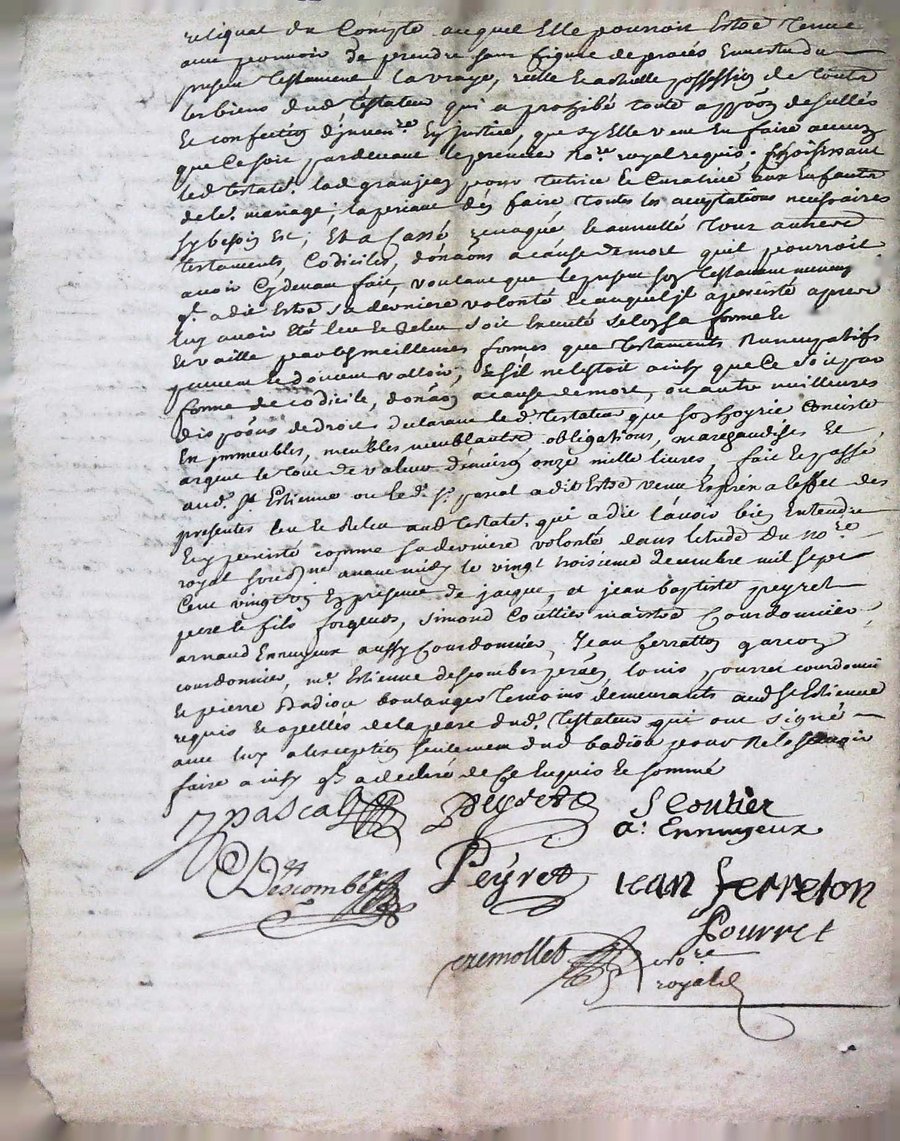 reliquat du Compte auquel Elle pourroit Estre Tenue
avec pouvoir de prendre sans figure de procés En vertu du
present Testament la vraye, reelle Et actuelle possession de touts
les biens dud. testateur qui a prohibé toute appôon de sellés
Et confection d'jnvenre. En justice, que sy Elle veut En faire
que Ce soit pardevant le premier nore. royal requis; choisissant
led. testatr. lad. granjon pour tutrice Et Curatrice aux Enfants
de le. mariage; la priant d'en faire toutes les acceptations necessaires
sy besoin Est; Et a Cassé revoqué Et annullé tous autres
testaments, Codiciles, donâons a cause de mort qu'il pourroit
avoir Cy devant fait, voulant que le present son Testament
qu. a dit Estre sa derniere volonté Et auquel jl a persisté apres
luy avoir Eté leu Et releu soit Executé selon sa forme Et
Et vaille par les meilleures formes que Testaments Nuncupatifs
peuvent Et doivent valloir; Et s'il n'estoit ainsy que Ce soit par
forme de codicile, donâon a cause de mort, ou autre meilleures
dispôons de droit declarant led. testateur que son hoyrie consiste
En jmmeubles, meubles meublants obligations, marchandises Et
argent le tout de valeur d'environ onze mille livres, fait Et passé
aud. St Estienne ou led. sr. pascal a dit Estre venu Exprez a l'effet des
presentes leu Et releu aud. testatr. qui a dit l'avoir bien Entendu
Et y persisté comme sa derniere volonté dans l'etude du nore.
royal soussigné avant midy le vingt troisieme decembre mil sept
Cent vingt En presence de jacque, et jean baptiste peyret
pere Et fils forgeurs, Simond Couttier maistre Courdonnier
arnaud Ennuyeux aussy Courdonnier, Jean ferratton garçon
courdonnier, me. Estienne descombes, louis pourret courdonnier
Et pierre Badiou boulanger temoins demeurants aud. St Estienne
requis Et apellés de la part dud. Testateur qui ont signé
avec luy a l'exception seulement dud. badiou pour ne le sçavoir
faire ainsy qu. a declaré de Ce Enquis Et sommé
Pascal Peyret S Coutier
a: Ennuyeux
Descombes Peyret iean ferreton
Pourret
cremollet nore.
royal